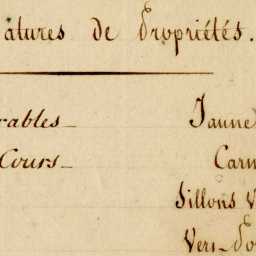 atures de Propriétés.
rables_ Jaune
Cours_ Carm
Sillons V
Vers_